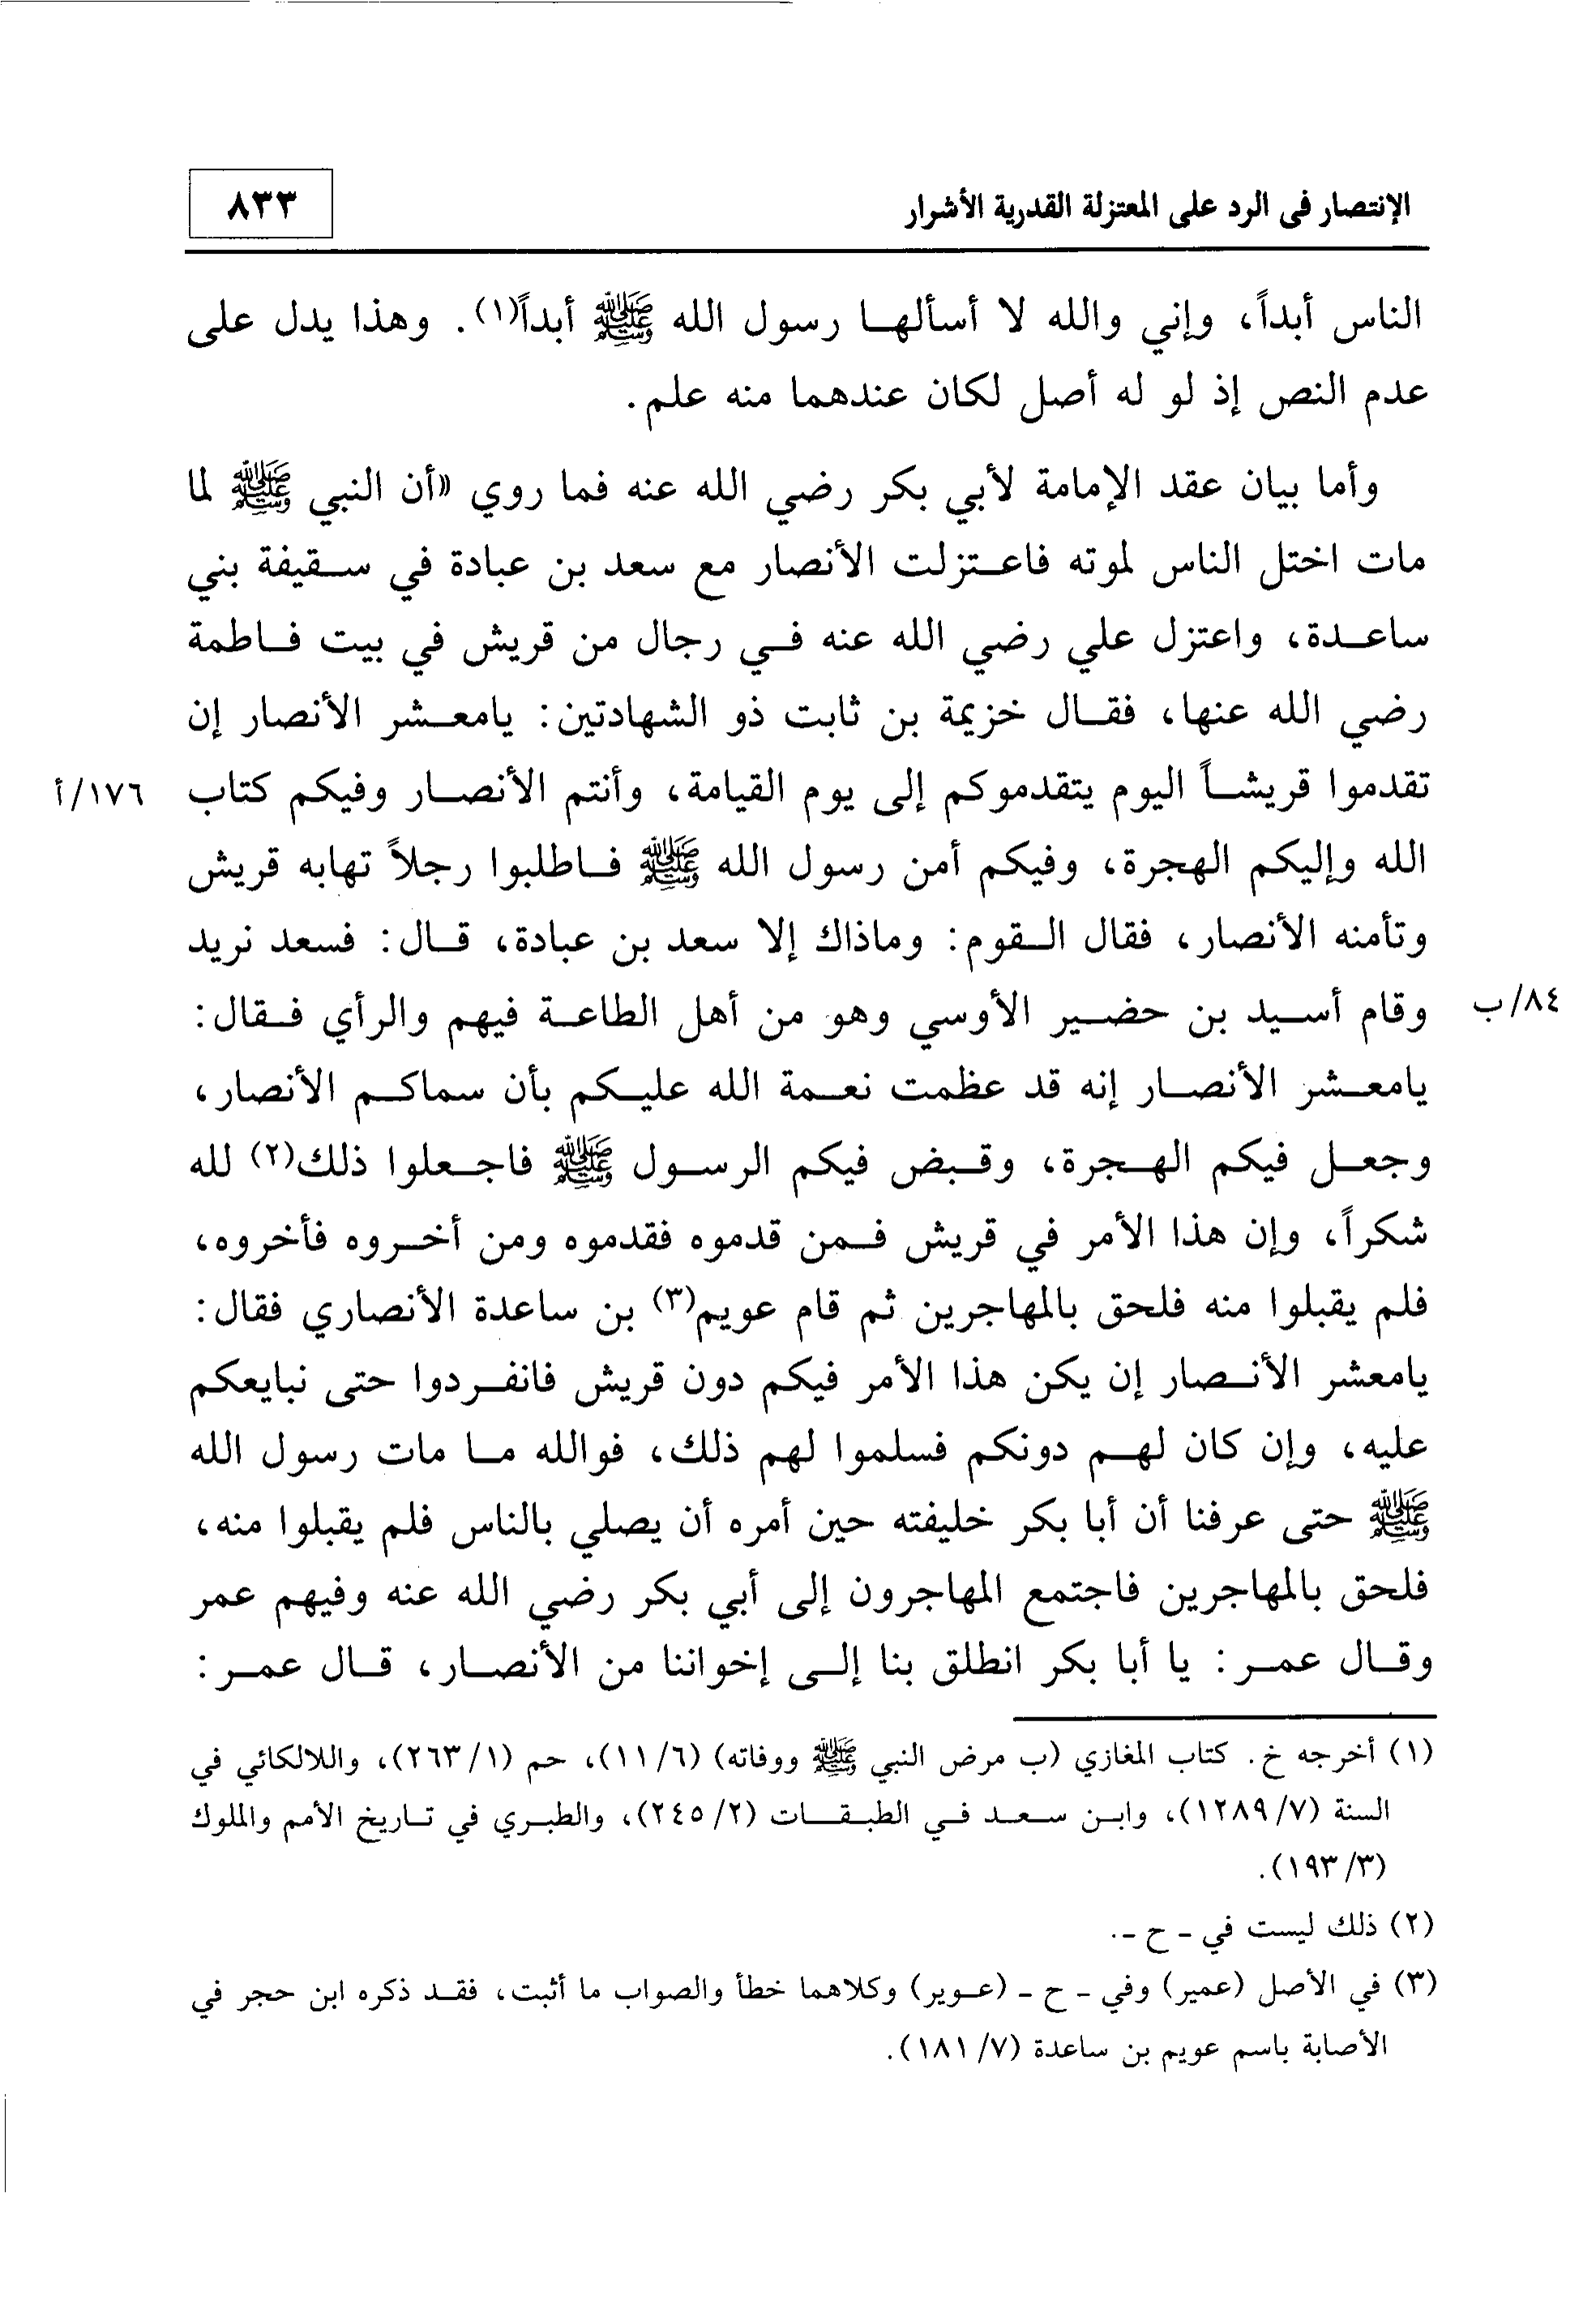 الإنتصار في الرد على المعتزلة القدرية الأشرار
٨٣٣
الناس أبداً، وإني والله لا أسألها رسول الله ﷺ أبداً(١). وهذا يدل على
عدم النص إذ لو له أصل لكان عندهما منه علم.
وأما بيان عقد الإمامة لأبي بكر رضي الله عنه فما روي «أن النبي ﷺ لما
مات اختل الناس لموته فاعتزلت الأنصار مع سعد بن عبادة في سقيفة بني
ساعدة، واعتزل علي رضي الله عنه في رجال من قريش في بيت فاطمة
رضي الله عنها، فقال خزيمة بن ثابت ذو الشهادتين: يامعشر الأنصار إن
تقدموا قريشاً اليوم يتقدموكم إلى يوم القيامة، وأنتم الأنصار وفيكم كتاب
١٧٦/أ
الله وإليكم الهجرة، وفيكم أمن رسول الله ﷺ فاطلبوا رجلاً تهابه قريش
وتأمنه الأنصار، فقال القوم: وماذاك إلا سعد بن عبادة، قال: فسعد نريد
٨٤/ب
وقام أسيد بن حضير الأوسي وهو من أهل الطاعة فيهم والرأي فقال:
يامعشر الأنصار إنه قد عظمت نعمة الله عليكم بأن سماكم الأنصار،
وجعل فيكم الهجرة، وقبض فيكم الرسول ﷺ فاجعلوا ذلك(٢) لله
شكراً، وإن هذا الأمر في قريش فمن قدموه فقدموه ومن أخروه فأخروه،
فلم يقبلوا منه فلحق بالمهاجرين ثم قام عويم(٣) بن ساعدة الأنصاري فقال:
يامعشر الأنصار إن يكن هذا الأمر فيكم دون قريش فانفردوا حتى نبايعكم
عليه، وإن كان لهم دونكم فسلموا لهم ذلك، فوالله ما مات رسول الله
ﷺ حتى عرفنا أن أبا بكر خليفته حين أمره أن يصلي بالناس فلم يقبلوا منه،
فلحق بالمهاجرين فاجتمع المهاجرون إلى أبي بكر رضي الله عنه وفيهم عمر
وقال عمر: يا أبا بكر انطلق بنا إلى إخواننا من الأنصار، قال عمر:
(١) أخرجه خ. كتاب المغازي (ب مرض النبي ﷺ ووفاته) (١١/٦)، حم (٢٦٣/١)، واللالكائي في
السنة (١٢٨٩/٧)، وابن سعد في الطبقات (٢٤٥/٢)، والطبري في تاريخ الأمم والملوك
(١٩٣/٣).
(٢) ذلك ليست في - ح -.
(٣) في الأصل (عمير) وفي - ح - (عوير) وكلاهما خطأ والصواب ما أثبت، فقد ذكره ابن حجر في
الأصابة باسم عويم بن ساعدة (١٨١/٧).